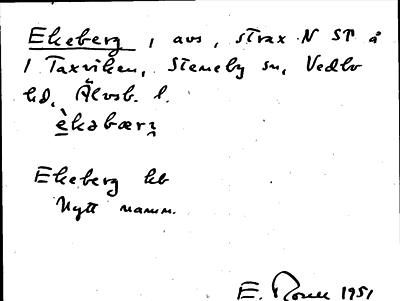 Ekeberg, avs, strax N ST å
i Taxviken, Steneby sn, Vedbo
hd, Älvsb. l.
èkəbærʒ
Ekeberg kb
Nytt namn.
E. 1951